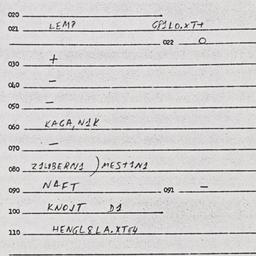 020
021 LEMP CP1LO.XT+
022 O
030 +
040 –
050 –
060 KAGA, N1K
070 –
080 Z1LBBERN1 ) MEST1N1
090 NAFT 091 –
100 KNOJT D1
110 HENGL8LA.XT64